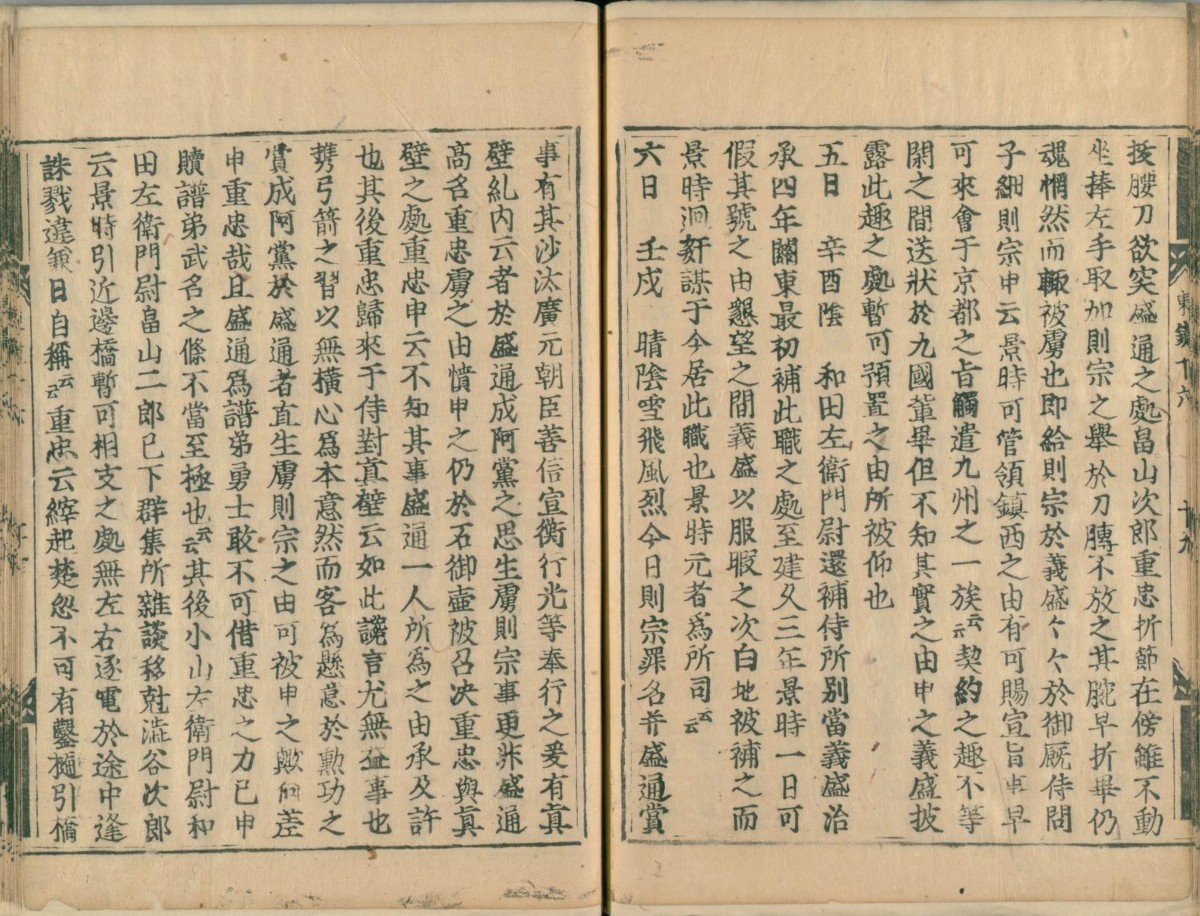 拔腰刀欲突盛通之處畠山次郎重忠折節在傍雖不動
坐捧左手取加則宗之擧於刀膊不放之其腕早折畢仍
魂惘然而輙被虜也即給則宗於義盛々々於御厩侍問
子細則宗申云景時可管領鎭西之由有可賜宣旨事早
可來會于京都之旨觸遣九州之一族云云契約之趣不等
閑之間送狀於九國輩畢但不知其實之由申之義盛披
露此趣之處暫可預置之由所被仰也
五日 辛酉陰 和田左衛門尉還補侍所別當義盛治
承四年關東最初補此職之處至建久三年景時一日可
假其號之由懇望之間義盛以服暇之次白地被補之而
景時洄奸謀于今居此職也景時元者爲所司云云
六日 壬戌 晴陰雪飛風烈今日則宗罪名并盛通賞
東鑑十六 十九
事有其沙汰廣元朝臣善信宣衡行光等奉行之爰有眞
壁糺內云者於盛通成阿黨之思生虜則宗事更非盛通
高名重忠虜之由憤申之仍於石御壷被召决重忠與眞
壁之處重忠申云不知其事盛通一人所爲之由承及許
也其後重忠歸來于侍對眞壁云如此讒言尤無益事也
携弓箭之習以無橫心爲本意然而客爲懸意於勳功之
賞成阿黨於盛通者直生虜則宗之由可被申之歟何差
申重忠哉且盛通爲譜弟勇士敢不可借重忠之力已申
贖譜弟武名之條不當至極也云云其後小山左衛門尉和
田左衛門尉畠山二郎已下群集所雜談移尅澁谷次郎
云景時引近邊橋暫可相支之處無左右逐電於途中逢
誅戮違兼日自稱云云重忠云縡起楚忽不可有鑿樋引橋